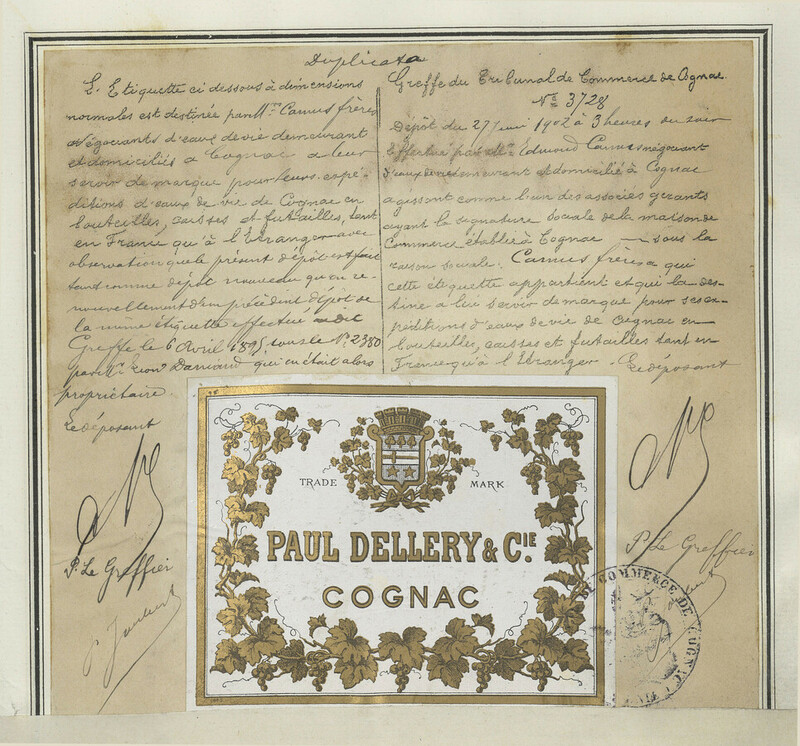 Duplicata
L'Etiquette ci dessous à dimensions
normales est destinée par MM. Camus frères
négociants d'eaux de vie demeurant
et domiciliés à Cognac à leur
servir de marque pour leurs expé-
ditions d'eaux de vie de Cognac en
bouteilles, caisses et futailles, tant
en France qu'à l'Etranger avec
observation que le présent dépôt est fait
tant comme dépôt nouveau qu'en re-
nouvellement d'un précédent dépôt de
la même étiquette effectué au dit
Greffe le 6 Avril 1895 sous le No. 2380
par Damiaud qui en était alors
propriétaire.
Le déposant
P. Le Greffier
Greffe du Tribunal de Commerce de Cognac
No. 3728
Dépôt du 27 1902 à 3 heures du soir
Effectué par Mr. Edmond Camus négociant
d'eaux de vie demeurant et domicilié à Cognac
agissant comme l'un des associés gérants
ayant la signature sociale de la maison de
Commerce établie à Cognac sous la
raison sociale: Camus frères a qui
cette étiquette appartient et qui la des-
tine à lui servir de marque pour ses ex-
péditions d'eaux de vie de Cognac en
bouteilles, caisses et futailles tant en
France qu'à l'Etranger. Le déposant
P. Le Greffier
TRADE MARK
PAUL DELLERY & CIE.
COGNAC
COMMERCE DE COGNAC